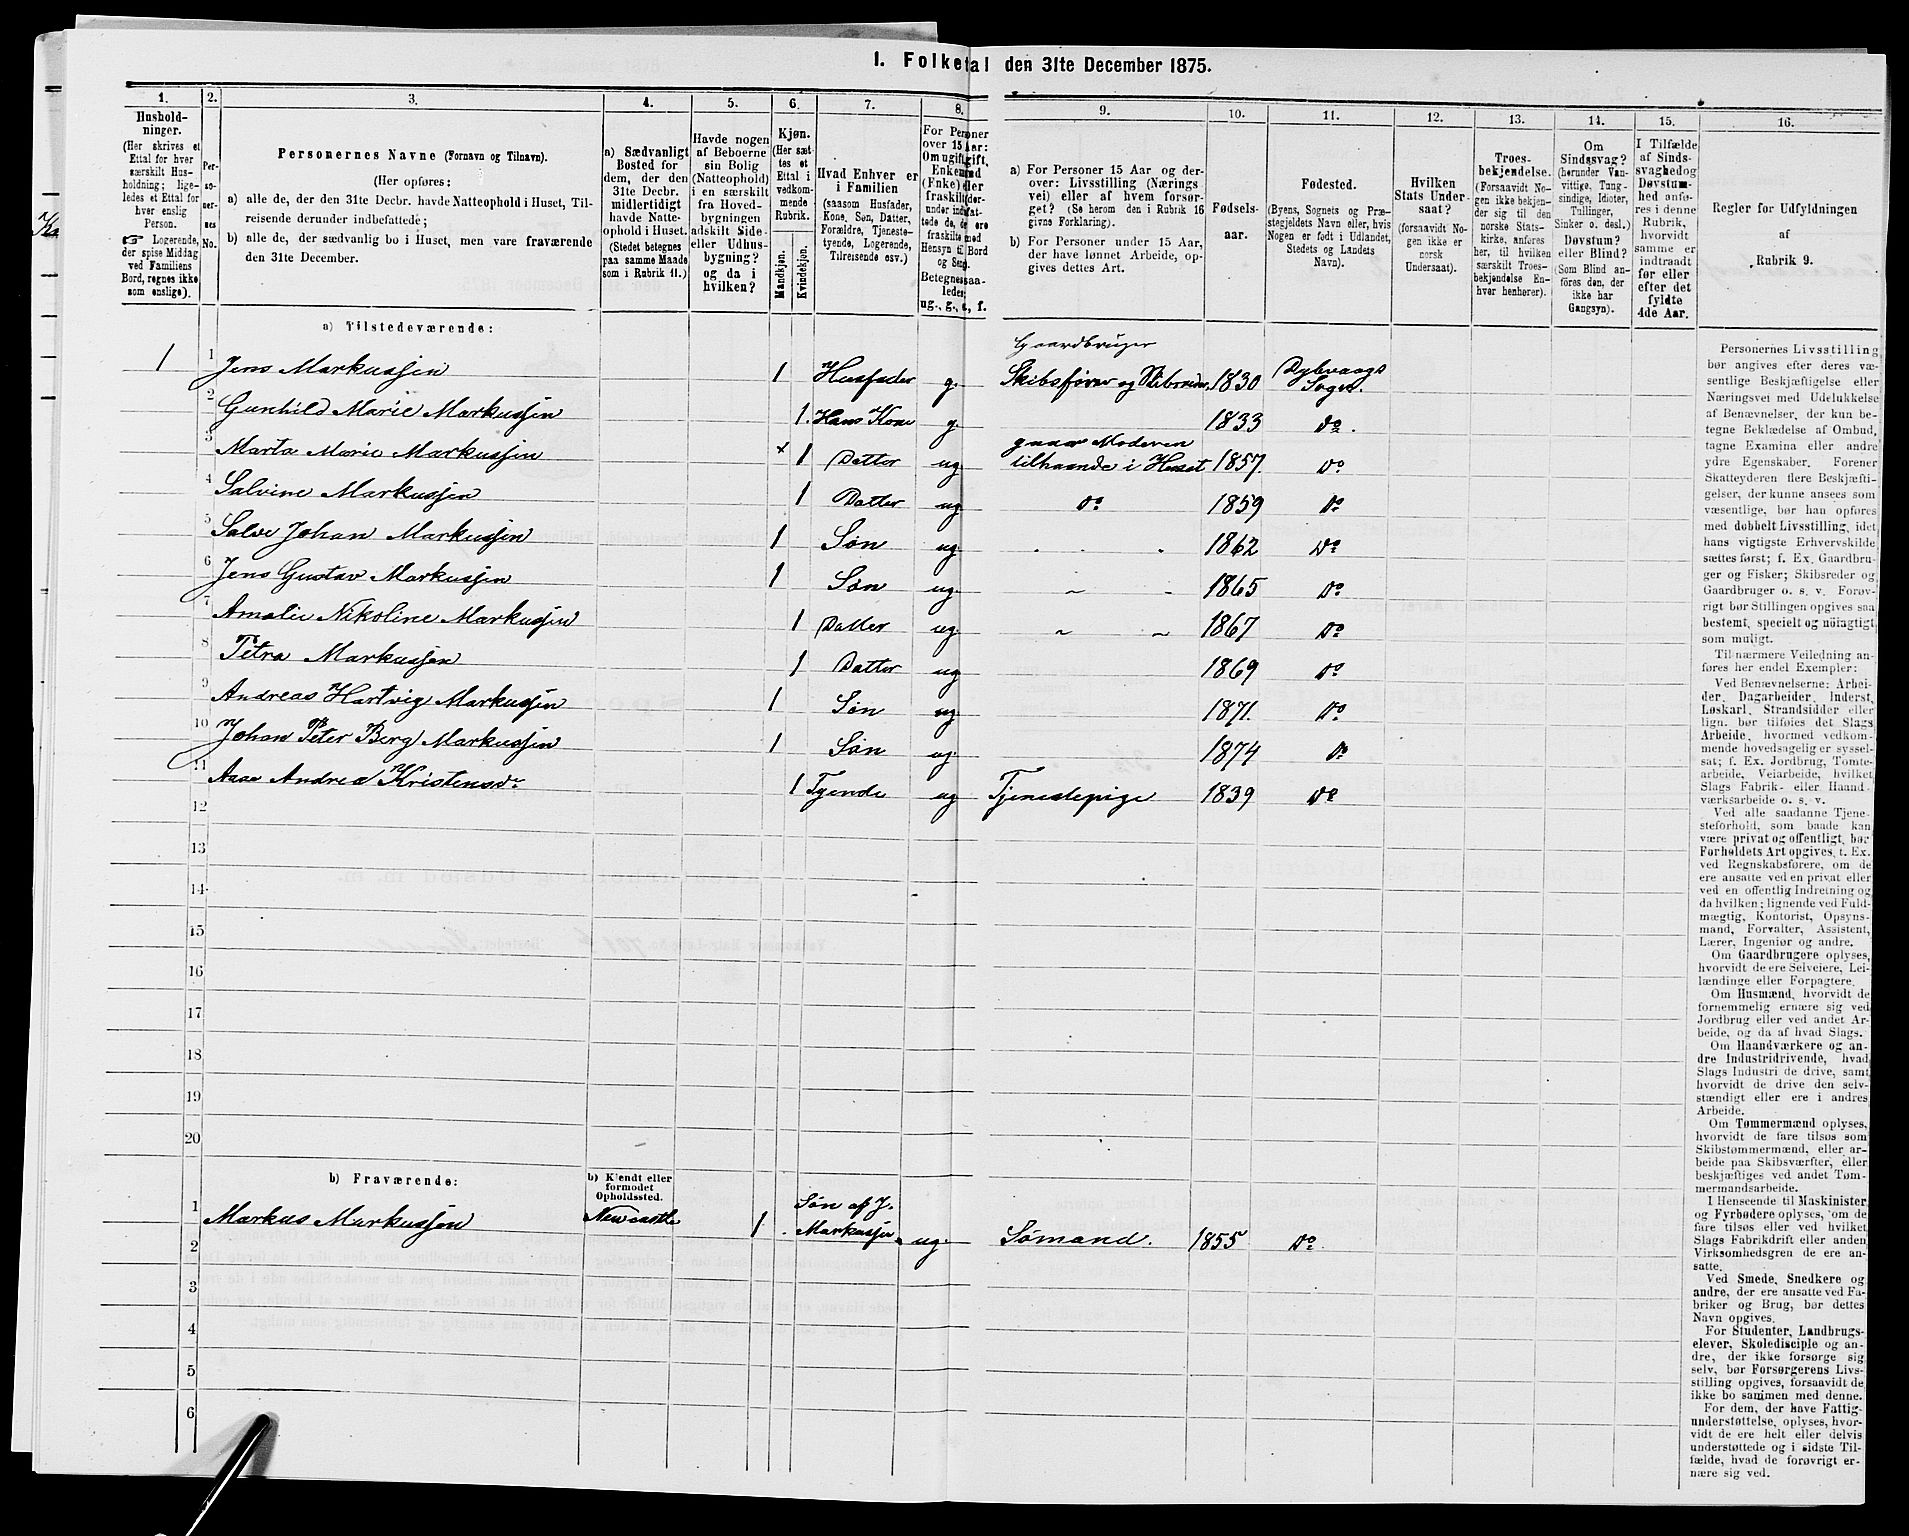 I. Folketal den 31te December 1875.
1. 2. 3. 4. 5. 6. 7. 8. 9. 10. 11. 12. 13. 14. 15. 16.
Hushold-
ninger.
(Her skrives et
Ettal for hver
særskilt Hus-
holdning; lige-
ledes et Ettal for
hver enslig
Person.
☞ Logerende,
der spise Middag
ved Familiens
Bord, regnes ikke
som enslige).
Per-
so-
ner-
nes
No.
Personernes Navne (Fornavn og Tilnavn).
(Her opføres:
a) alle de, der den 31te Decbr. havde Natteophold i Huset, Til-
reisende derunder indbefattede;
b) alle de, der sædvanlig bo i Huset, men vare fraværende
den 31te December.
a) Sædvanligt
Bosted for
dem, der den
31te Decbr.
midlertidigt
havde Natte-
ophold i Huset.
(Stedet betegnes
paa samme Maade
som i Rubrik 11.)
Havde nogen
af Beboerne
sin Bolig
(Natteophold)
i en særskilt
fra Hoved-
bygningen
adskilt Side-
eller Udhus-
bygning?
og da i
hvilken?
Kjøn.
(Her sæt-
tes et
Ettal i
vedkom-
mende
Rubrik.
Mandkjøn.
Kvindekjøn.
Hvad Enhver er
i Familien
(saasom Husfader,
Kone, Søn, Datter,
Forældre, Tjeneste-
tyende, Logerende,
Tilreisende osv.)
For Personer
over 15 Aar:
Om ugift, gift,
Enkemand
(Enke) eller
fraskilt (der-
under indbefat-
tede de, der ere
fraskilte med
Hensyn til Bord
og Seng.
Betegnes saa-
ledes:
ug., g., e, f.
a) For Personer 15 Aar og der-
over: Livsstilling (Nærings-
vei) eller af hvem forsør-
get? (Se herom den i Rubrik 16
givne Forklaring).
b) For Personer under 15 Aar,
der have lønnet Arbeide, op-
gives dettes Art.
Fødsels-
aar.
Fødested.
(Byens, Sognets og Præ-
stegjeldets Navn eller, hvis
Nogen er født i Udlandet,
Stedets og Landets
Navn).
Hvilken
Stats Under-
saat?
(forsaavidt No-
gen ikke er
norsk
Undersaat).
Troes-
bekjendelse.
(Forsaavidt No-
gen ikke bekjen-
der sig til den
norske Stats-
kirke, anføres
her, til hvilken
særskilt Troes-
bekjendelse En-
hver henhører).
Om
Sindssvag?
(herunder Van-
vittige, Tung-
sindige, Idioter,
Tullinger,
Sinker o. desl.)
Døvstum?
eller Blind?
(Som Blind an-
føres den, der
ikke har
Gangsyn).
I Tilfælde
af Sinds-
svaghed og
Døvstum-
hed anfø-
res i denne
Rubrik,
hvorvidt
samme er
indtraadt
før eller
efter det
fyldte
4de Aar.
Regler for Udfyldningen
af
Rubrik 9.
a) Tilstedeværende:
1 1 Jens Markussen 1 Husfader g. Gaardbruger Skibsfører og Skibsreder, 1830 Dybvaags Sogn.
2 Gunhild Marie Markussen 1. Hans Kone g. 1833 do.
3 Marta Marie Markussen x 1 Datter ug gaaer Moderen tilhaande i Huset 1857. do
4 Salvine Markussen 1 Datter ug do 1859 do
5 Salve Johan Markussen 1 Søn ug 1862 do
6 Jens Gustav Markussen 1 Søn ug. 1865 do
7 Amalie Nikoline Markussen 1 Datter ug 1867 do
8 Petra Markussen 1 Datter ug 1869 do
9 Andreas Hartvig Markussen 1 Søn ug 1871. do
10 Johan Peter Berg Markussen 1 Søn ug. 1874 do
11 Aase Andrea Kristensdr. 1 Tyende ug Tjenestepige 1839 do
12
13
14
15
16
17
18
19
20
b) Fraværende:
b) Kjendt eller
formodet
Opholdssted.
1 Markus Markussen Newcastle 1 Søn af J. Markussen ug. Sømand. 1855 do.
2
3
4
5
6
Personernes Livsstilling
bør angives efter deres væ-
sentlige Beskjæftigelse eller
Næringsvei med Udelukkelse
af Benævnelser, der kun be-
tegne Beklædelse af Ombud,
tagne Examina eller andre
ydre Egenskaber. Forener
Skatteyderen flere Beskjæfti-
gelser, der kunne ansees som
væsentlige, bør han opføres
med dobbelt Livsstilling, idet
hans vigtigste Erhvervskilde
sættes først; f. Ex. Gaardbru-
ger og Fisker; Skibsreder og
Gaardbruger o. s. v. Forøv-
rigt bør Stillingen opgives saa
bestemt, specielt og nöiagtigt
som muligt.
Til nærmere Veiledning an-
føres her endel Exempler:
Ved Benævnelserne: Arbei-
der, Dagarbeider, Inderst,
Løskarl, Strandsidder eller
lign. bør tilføies det Slags
Arbeide, hvormed vedkom-
mende hovedsagelig er syssel-
sat; f. Ex. Jordbrug, Tomte-
arbeide, Veiarbeide, hvilket
Slags Fabrik- eller Haand-
værksarbeide o. s. v.
Ved alle saadanne Tjene-
steforhold, som baade kan
være privat og offentligt, bør
Forholdets Art opgives, t. Ex.
ved Regnskabsførere, om de
ere ansatte ved en privat eller
ved en offentlig Indretning og
da hvilken; lignende ved Fuld-
mægtig, Kontorist, Opsyns-
mand, Forvalter, Assistent,
Lærer, Ingeniør og andre.
Om Gaardbrugere oplyses,
hvorvidt de ere Selveiere, Lei-
lændinge eller Forpagtere.
Om Husmænd, hvorvidt de
fornemmelig ernære sig ved
Jordbrug eller ved andet Ar-
beide, og da af hvad Slags.
Om Haandværkere og an-
dre Industridrivende, hvad
Slags Industri de drive, samt
hvorvidt de drive den selv-
stændigt eller ere i andres
Arbeide.
Om Tømmermænd oplyses,
hvorvidt de fare tilsøs som
Skibstømmermænd, eller ar-
beide paa Skibsværfter, eller
beskjæftiges ved andet Tøm-
mermandsarbeide.
I Henseende til Maskinister
og Fyrbødere oplyses, om de
fare tilsøs eller ved hvilket
Slags Fabrikdrift eller anden
Virksomhedsgren de ere an-
satte.
Ved Smede, Snedkere og
andre, der ere ansatte ved Fa-
briker og Brug, bør dettes
Navn opgives.
For Studenter, Landbrugs-
elever, Skoledisciple og an-
dre, der ikke forsørge sig
selv, bør Forsørgerens Livs-
stilling opgives, forsaavidt de
ikke bo sammen med denne.
For dem, der have Fattig-
understøttelse, oplyses, hvor-
vidt de ere helt eller delvis
understøttede og i sidste Til-
fælde, hvad de forøvrigt er-
nære sig ved.